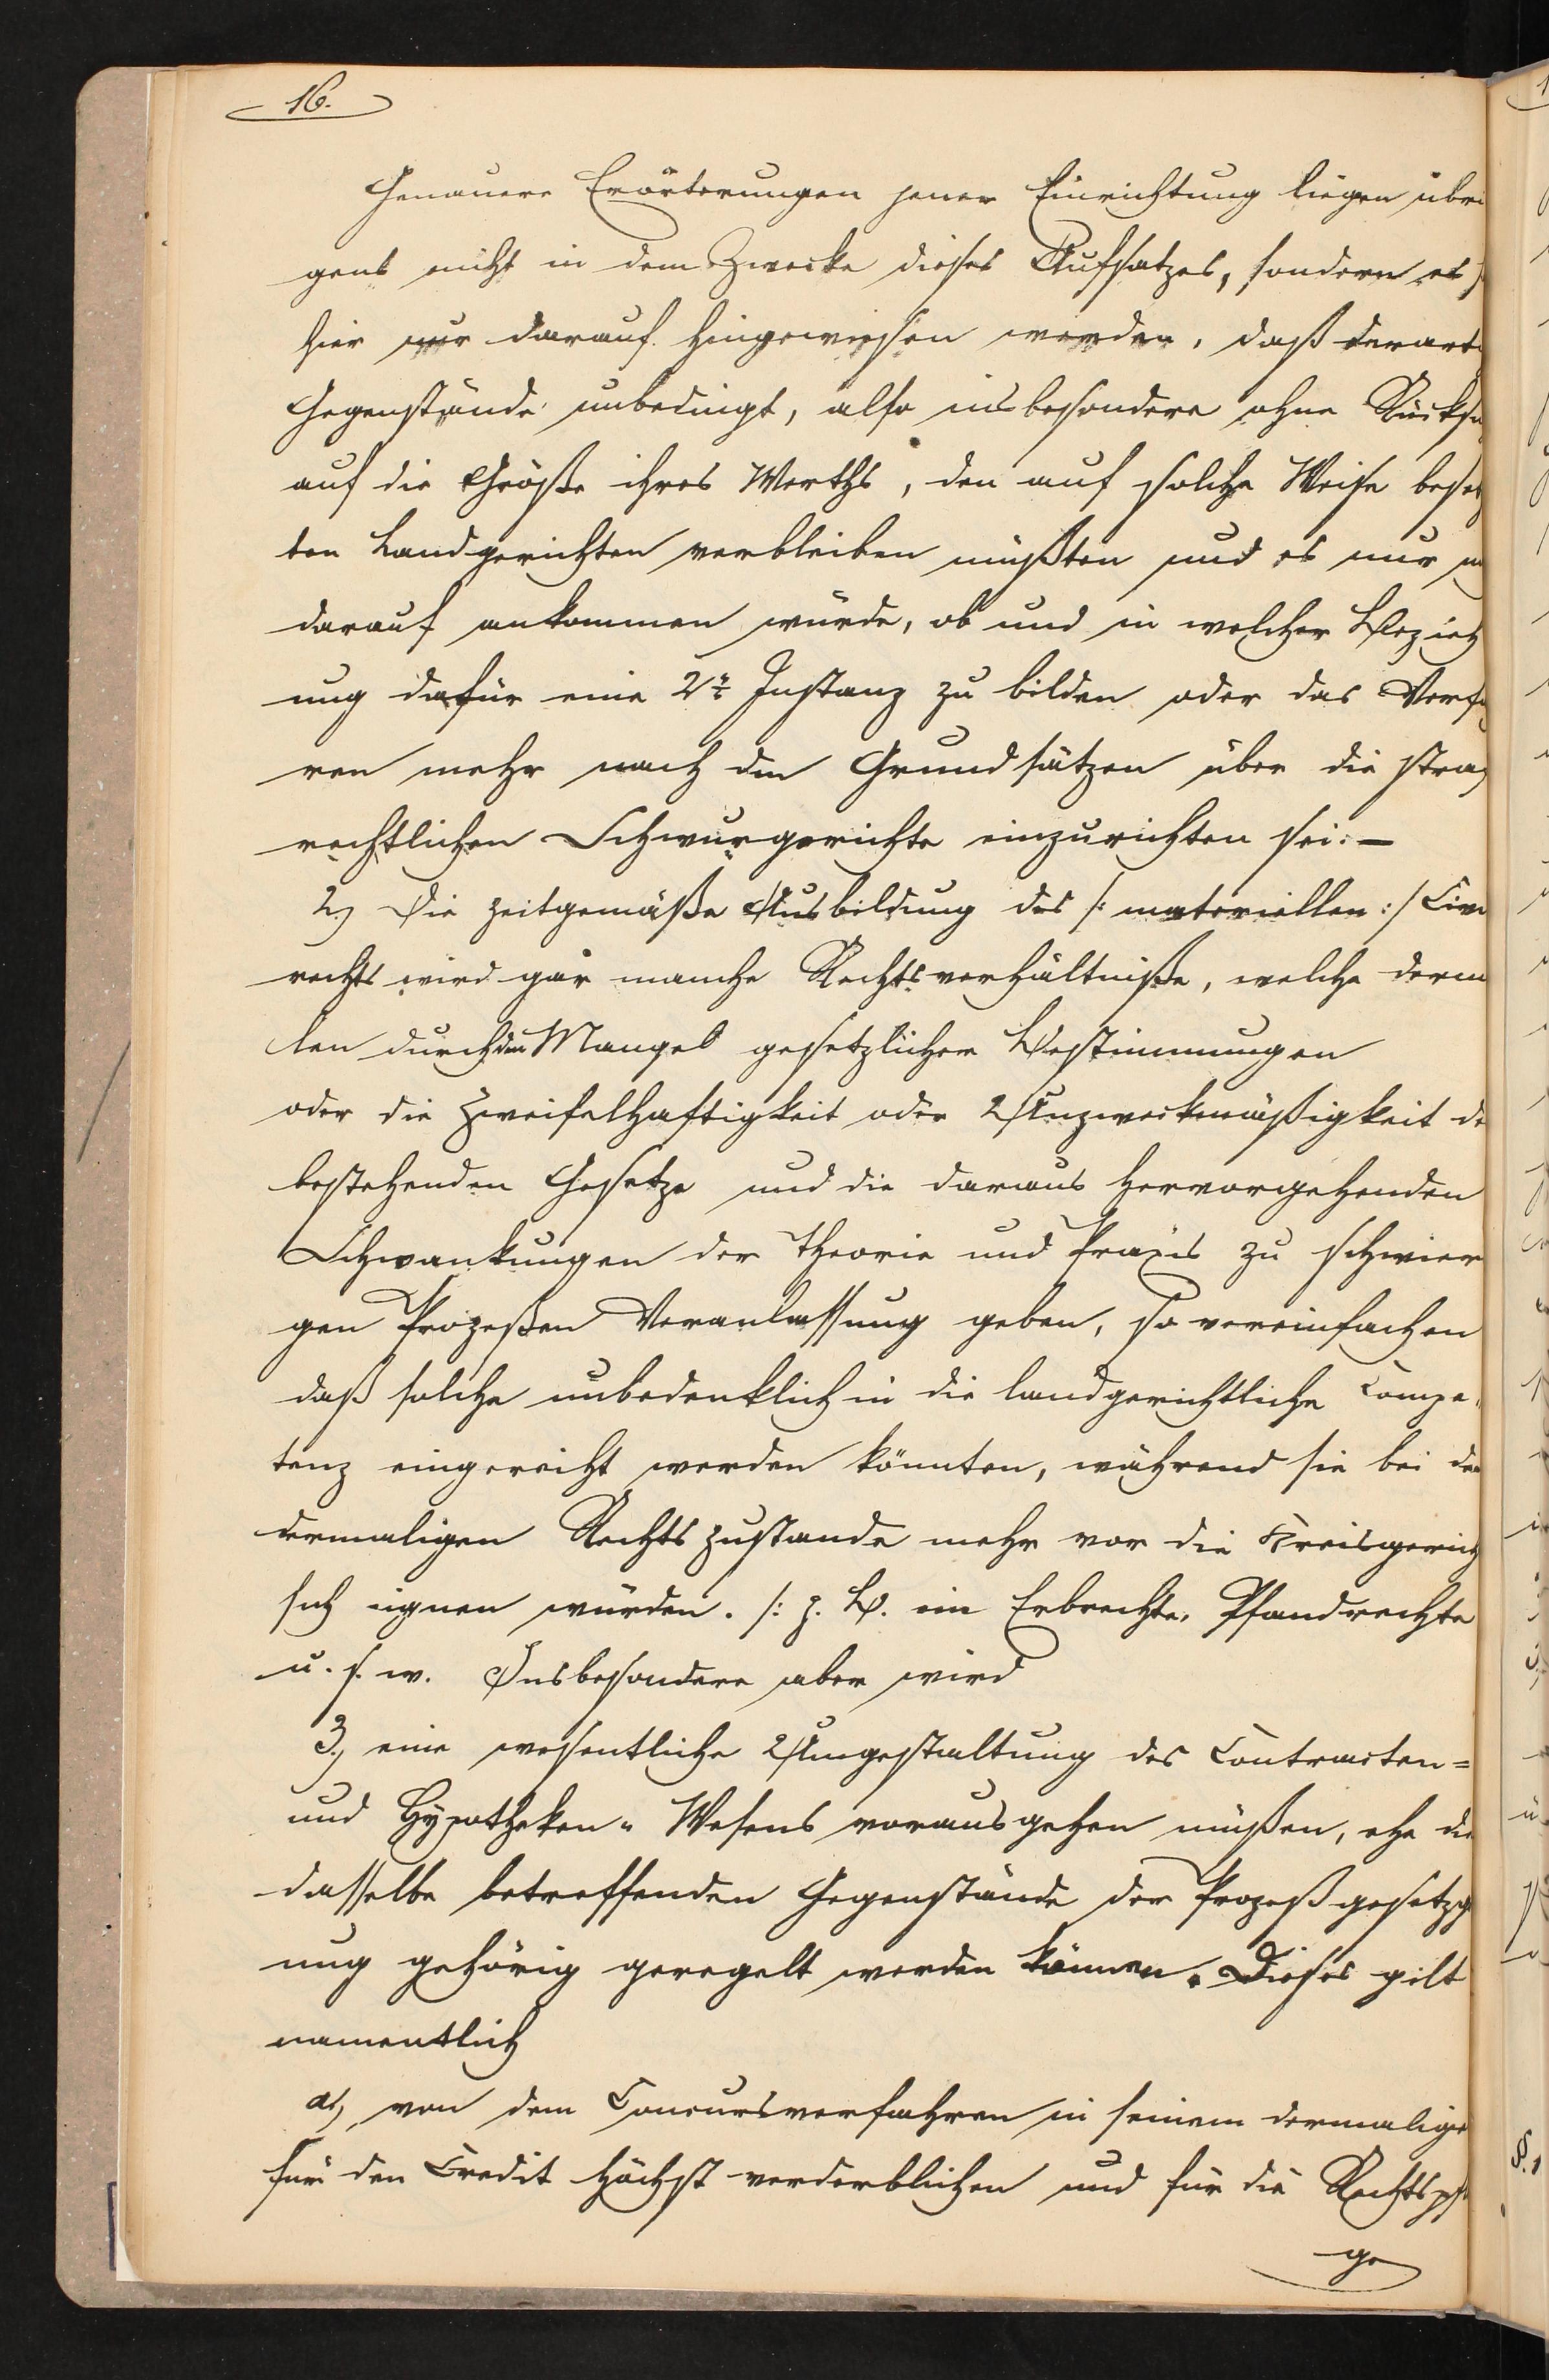 16.
Genauere Erörterungen jener Einrichtung liegen übri
gens nicht in dem Zwecke dieses Aufsatzes, sondern es
hier nur darauf hingewiesen werden, daß derarti
Gegenstände unbedingt, also insbesondere ohne Rücksi
auf die Größe ihres Werths, den auf solche Weise beset
ten Landgerichten verbleiben müßten und es nur
darauf ankommen würde, ob und in welcher Bezieh
ung dafür eine 2te Instanz zu bilden oder das Verfa
ren mehr nach den Grundsätzen über die straf
rechtlichen Schwurgerichte einzurichten sei: –
2.) Die zeitgemäße Ausbildung des /: materiellen :/ Civil
rechts wird gar manche Rechtsverhältniße, welche derma
len durch den Mangel gesetzlicher Bestimmungen
oder die Zweifelhaftigkeit oder Unzweckmäßigkeit de
bestehenden Gesetze und die daraus hervorgehenden
Schwankungen der Theorie und Praxis zu schwieri
gen Prozeßen Veranlassung geben, so vereinfachen
daß solche unbedenklich in die landgerichtliche Compe
tenz eingereiht werden könnten, während sie bei dem
dermaligen Rechtszustande mehr vor die Kreisgerich
sich eignen würden. /: z. B. im Erbrechte, Pfandrechte
u. s. w. Insbesondere aber wird
3.) eine wesentliche Umgestaltung des Contracten=
und Hypotheken= Wesens vorausgehen müßen, ehe die
dasselbe betreffenden Gegenstände der Prozeßgesetzge
ung gehörig geregelt werden können. Dieses gilt
namentlich
a) von dem Concursverfahren in seinem dermalige
für den Credit höchst verderblichen und für die Rechtspfl
ge
§.